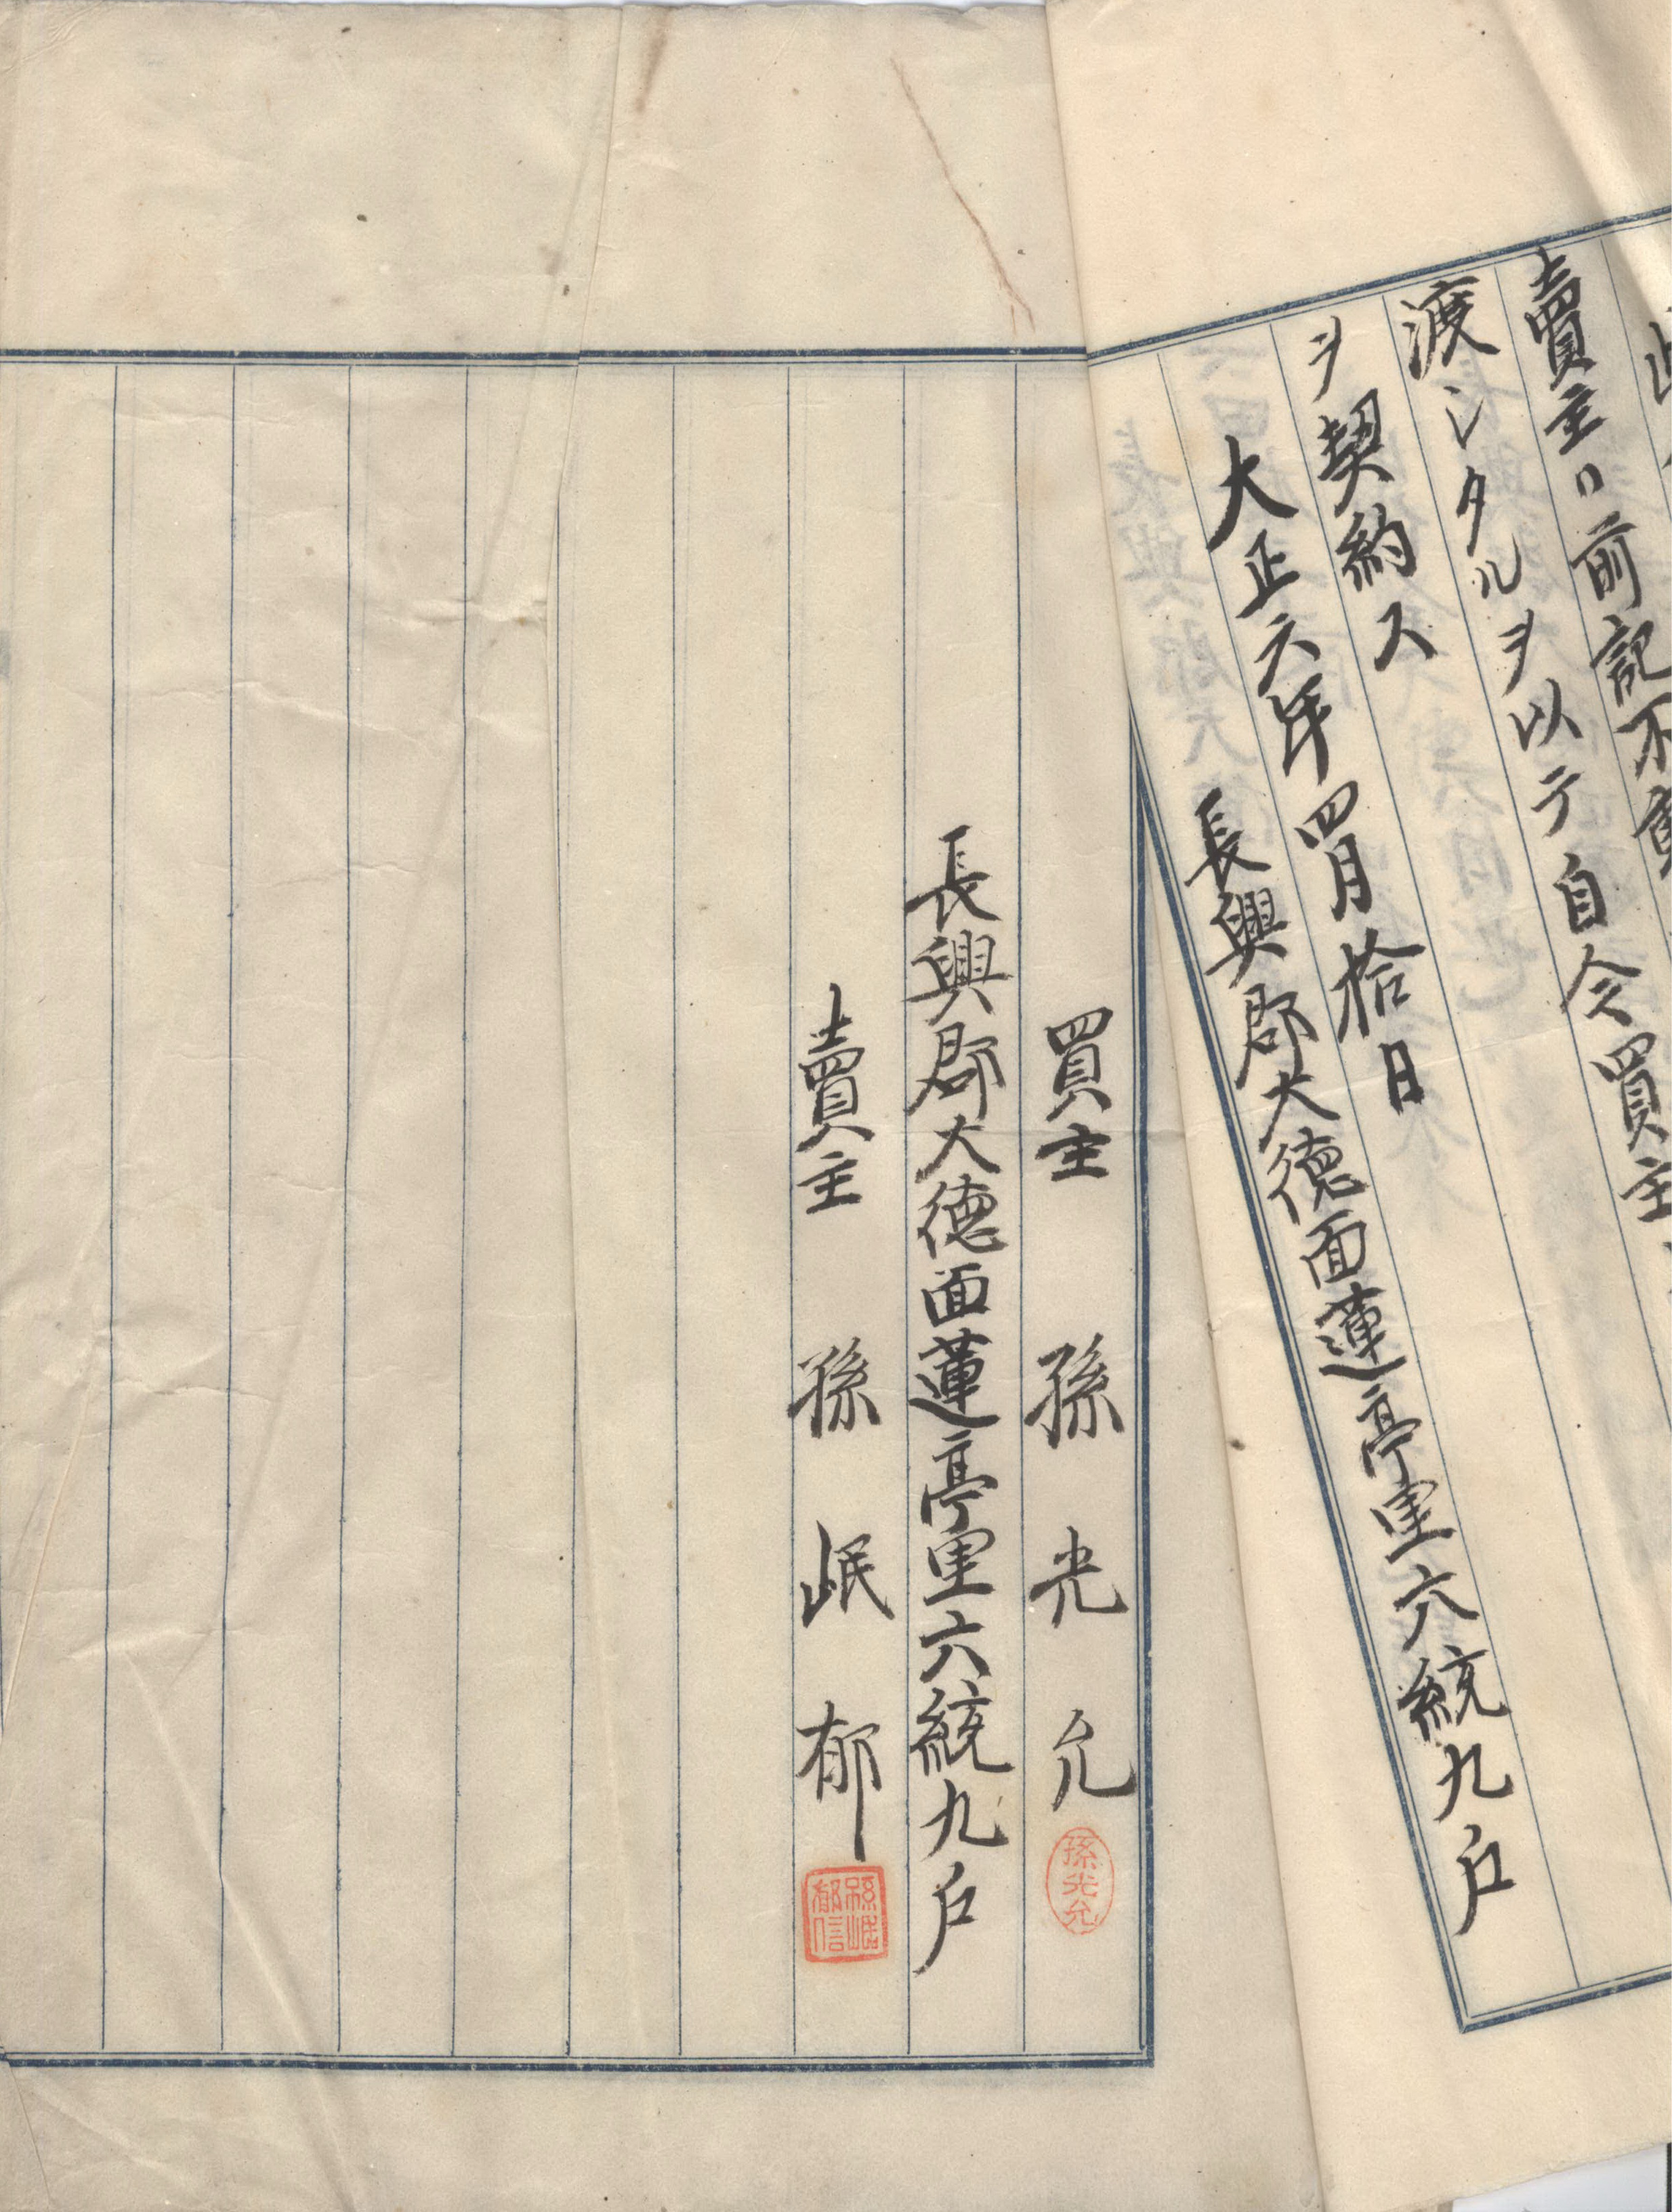 賣主ハ前記不
渡シタルヲ以テ自今買主
ヲ契約ス
大正六年四月拾日
長興郡大德面蓮亭里六統九戶
買主 孫光允
孫光允
長興郡大德面蓮亭里六統九戶
賣主 孫岷郁
孫岷
郁信